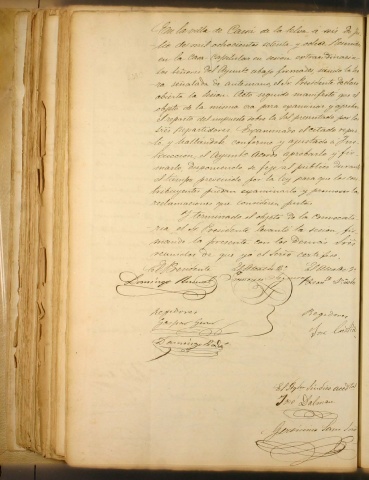 En la villa de Cassá de la Selva a seis de ju-
lio de mil ochocientos setenta y ocho. Reunidos
en la casa capitular en sesion extraordinaria
los Señores del Ayunt.º abajo firmados siendo la ho
ra señalada de antemano, el Sr. Presidente declaró
abierta la sesion. Acto seguido manifestó que el
objeto de la misma era para examinar y aprobar
el reparto del impuesto sobre la Sal presentado por los
Sres. Repartidores. Examinado el citado repar-
to y hallandole conforme y ajustado a Ins-
truccion, el Ayunt.º acordó aprobarlo y fir-
marlo disponiendo se fije al público durante
el tiempo prevenido por la ley para que los con-
tribuyentes puedan examinarlo y promover las
reclamaciones que consideren justas.
Y terminado el objeto de la convocato-
ria, el Sr. Presidente levantó la sesion fir-
mando la presente con los demas Sres.
reunidos de que yo el Srio. certifico.
El Presidente
Domingo
Regidores
Regidores
Gaspar
José
Domingo
El Sindico
José Dalmau
Geronimo